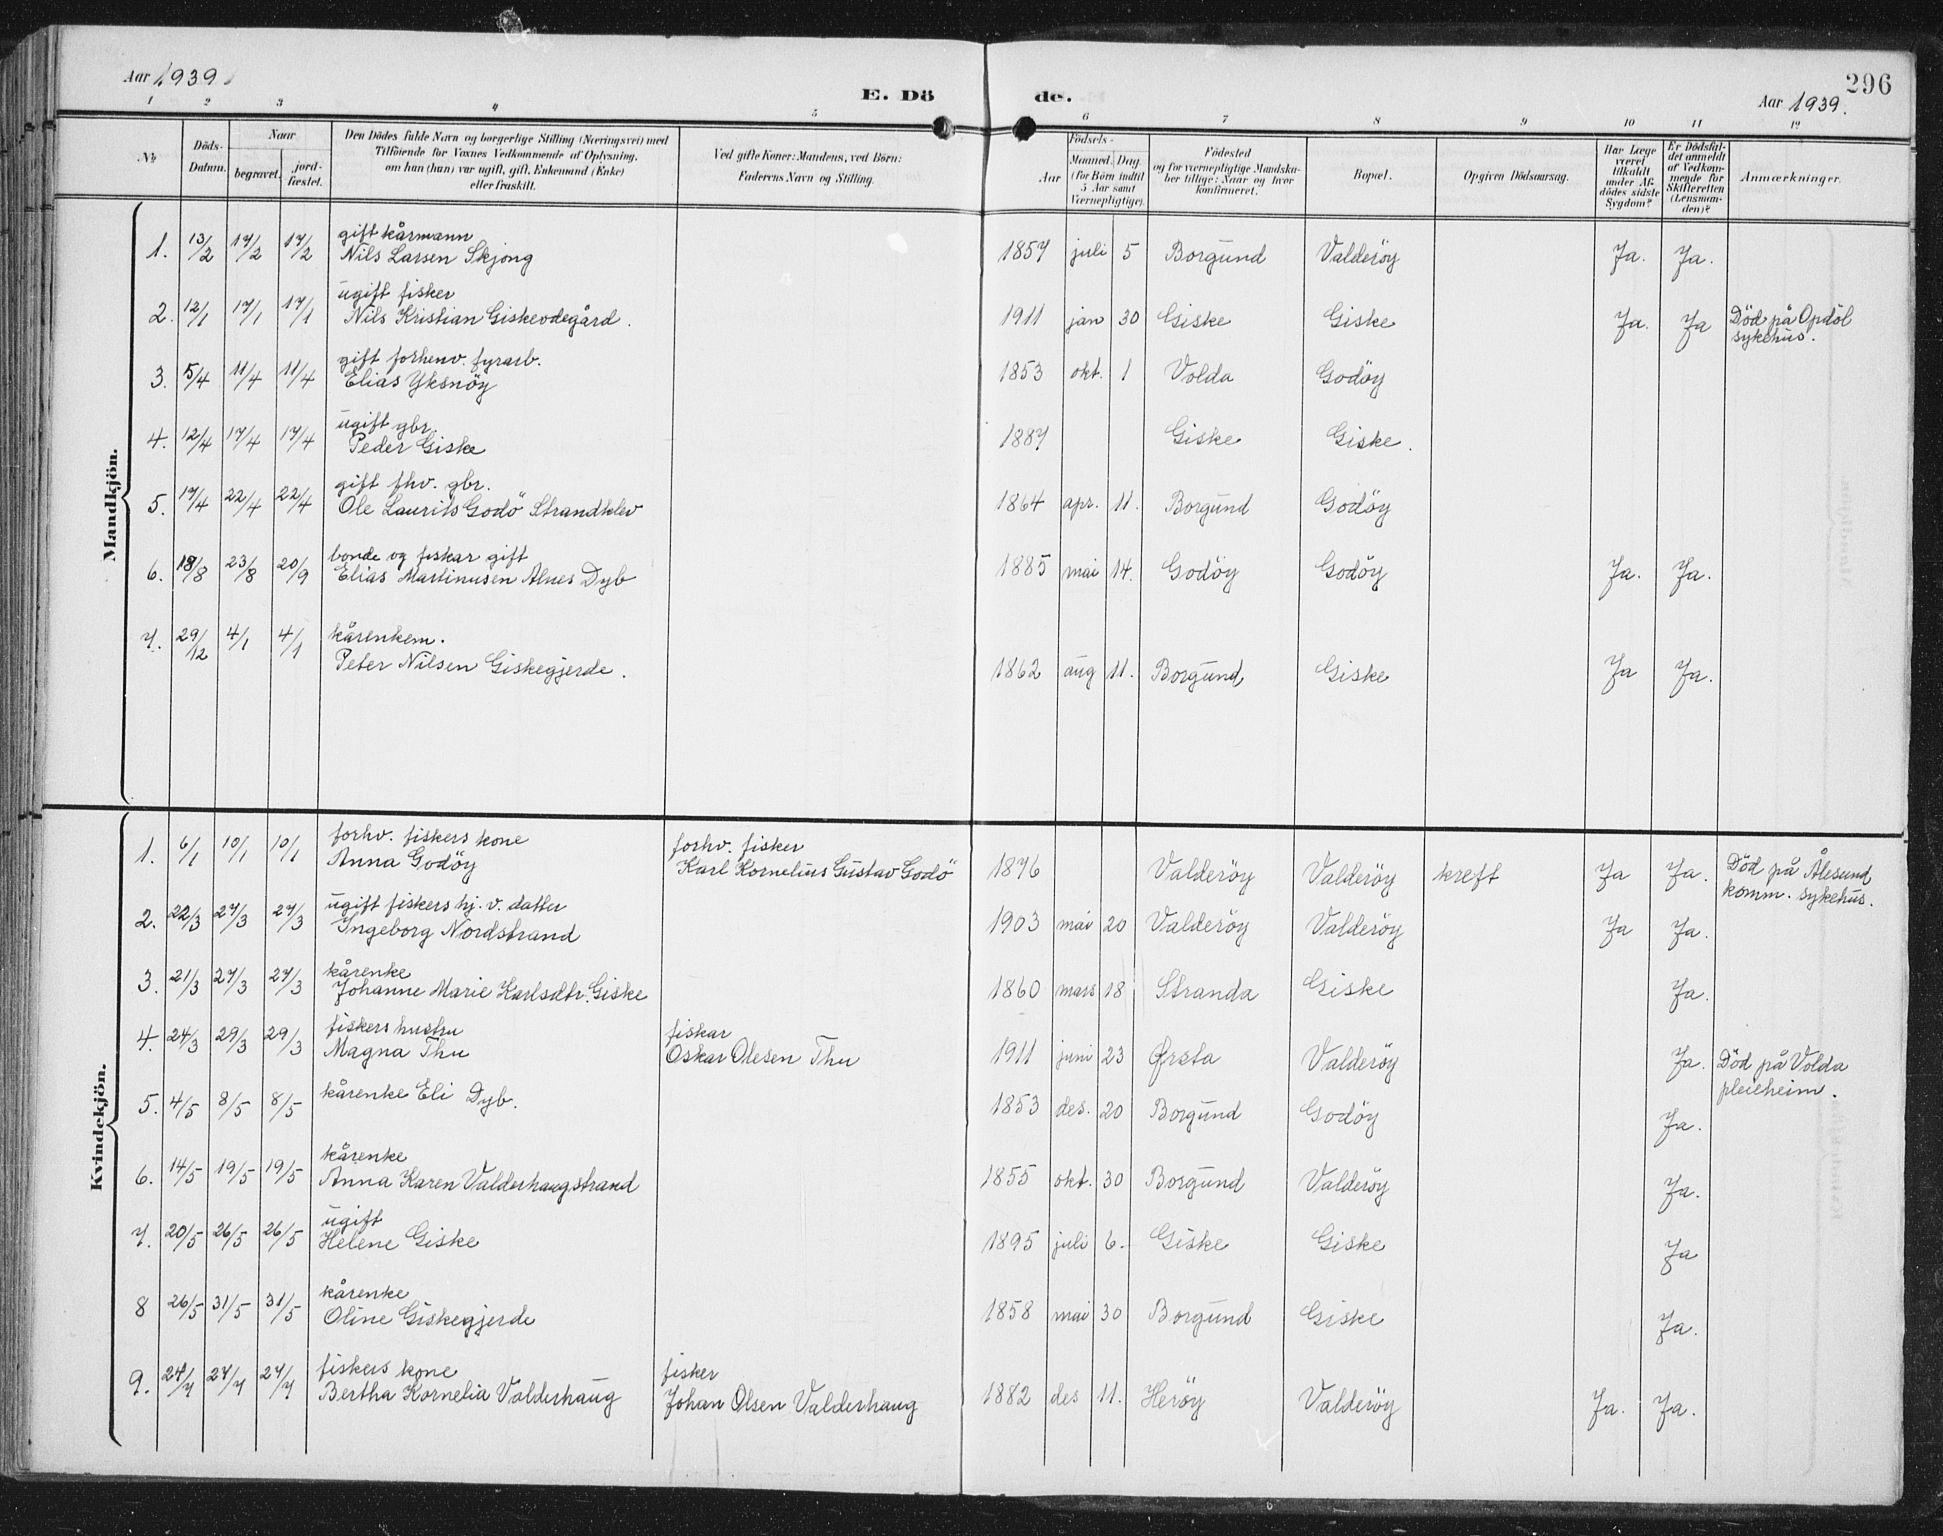 Aar 1939.
E. Dö de.
296
Aar 1939.
1 2 3 4 5 6 7 8 9 10 11 12
No
Döds-Datum.
Naar
begravet.
jord-fæstet.
Den Dödes fulde Navn og borgerlige Stilling (Næringsvei) med
Tilföiende for Voxnes Vedkommende af Oplysning,
om han (hun) var ugift, gift, Enkemand (Enke)
eller fraskilt.
Ved gifte Koner: Mandens, ved Börn:
Faderens Navn og Stilling.
Födsels-
Aar
Maaned. Dag
(for Börn indtil
5 Aar samt
Værnepligtige).
Födested
og for værnepligtige Mandska-
ber tillige: Naar og hvor
konfirmeret.
Bopæl.
Opgiven Dödsaarsag.
Har Læge
været
tilkaldt
under Af-
dödes sidste
Sygdom?
Er Dödsfal-
det anmeldt
af Vedkom-
mende for
Skifteretten
(Lensman-
den)?
Anmærkninger.
Mandkjön.
gift kårmann
1. 13/2 17/2 17/2 Nils Larsen Skjong 1857 juli 5 Borgund Valderöy Ja. Ja.
ugift fisker
2. 12/1 17/1 17/1 Nils Kristian Giskeodegård. 1911 jan 30 Giske Giske Ja. Ja Död på Opdöl
sykehus.
gift forhenv. fyrarb.
3. 5/4 11/4 11/4 Elias Yksnöy 1853 okt. 1 Volda Godöy
ugift gbr.
4. 12/4 17/4 17/4 Peder Giske 1887 Giske Giske.
gift fhv. gbr.
5. 17/4 22/4 22/4 Ole Laurits Godö Strandklev 1864 apr. 11. Borgund Godöy
bonde og fiskar gift
6. 18/8 23/8 20/9 Elias Martinusen Alnes Dyb 1885 mai 14. Godöy Godöy Ja. Ja.
7. 29/12 4/1 4/1 kårenkem.
Peter Nilsen Giskegjerde. 1862 aug 11. Borgund Giske Ja Ja.
Kvindekjön.
forhv. fiskers kone forhv. fisker
1. 6/1 10/1 10/1 Anna Godöy Karl Kornelius Gustav Godö 1876 Valderöy Valderöy kreft Ja Ja. Död på Ålesund
komm. sykehus.
ugift fiskers hj. v. datter
2. 22/3 27/3 27/3 Ingeborg Nordstrand 1903 mai 20 Valderöy Valderöy Ja Ja.
kårenke
3. 21/3 27/3 27/3 Johanne Marie Karlsdtr. Giske 1860 mars 18 Stranda Giske Ja.
fiskers hustru fiskar
4. 24/3 29/3 29/3 Magna Thu Oskar Olesen Thu 1911 juni 23 Ørsta Valderöy Ja. Död på Volda
pleieheim.
5. 4/5 8/5 8/5 kårenke Eli Dyb. 1853 des. 20 Borgund Godöy Ja.
kårenke
6. 14/5 19/5 19/5 Anna Karen Valderhaugstrand 1855 okt. 30 Borgund Valderöy Ja.
ugift
7. 20/5 26/5 26/5 Helene Giske 1895 juli 6. Giske Giske Ja
kårenke
8 26/5 31/5 31/5 Oline Giskegjerde 1858 mai 30 Borgund Giske Ja.
fiskers kone fisker
9. 24/7 27/7 27/7 Bertha Kornelia Valderhaug Johan Olsen Valderhaug 1882 des 11. Heröy Valderöy Ja. Ja.